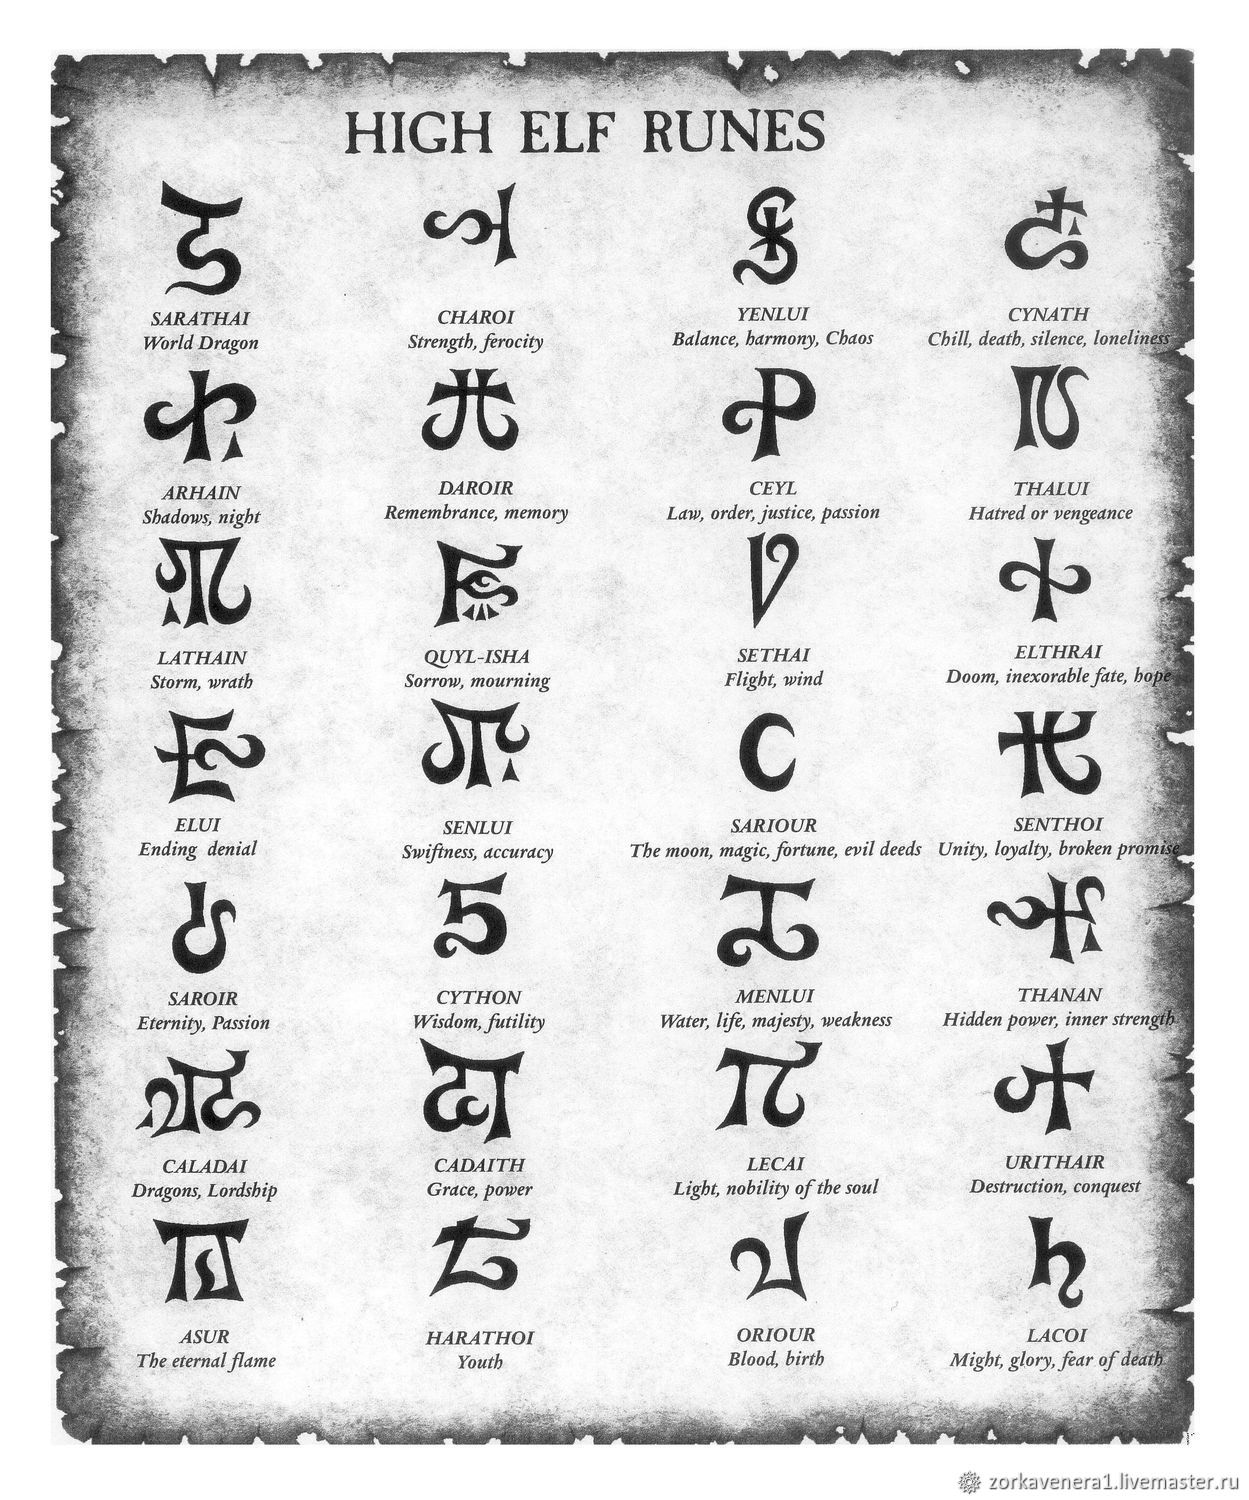 HIGH ELF RUNES
SARATHAI
World Dragon
CHAROI
Strength, ferocity
YENLUI
Balance, harmony, Chaos
CYNATH
Chill, death, silence, loneliness
ARHAIN
Shadows, night
DAROIR
Remembrance, memory
CEYL
Law, order, justice, passion
THALUI
Hatred or vengeance
LATHAIN
Storm, wrath
QUYL-ISHA
Sorrow, mourning
SETHAI
Flight, wind
ELTHRAI
Doom, inexorable fate, hope
ELUI
Ending denial
SENLUI
Swiftness, accuracy
SARIOUR
The moon, magic, fortune, evil deeds
SENTHOI
Unity, loyalty, broken promise
SAROIR
Eternity, Passion
CYTHON
Wisdom, futility
MENLUI
Water, life, majesty, weakness
THANAN
Hidden power, inner strength
CALADAI
Dragons, Lordship
CADAITH
Grace, power
LECAI
Light, nobility of the soul
URITHAIR
Destruction, conquest
ASUR
The eternal flame
HARATHOI
Youth
ORIOUR
Blood, birth
LACOI
Might, glory, fear of death
zorkavenera1.livemaster.ru